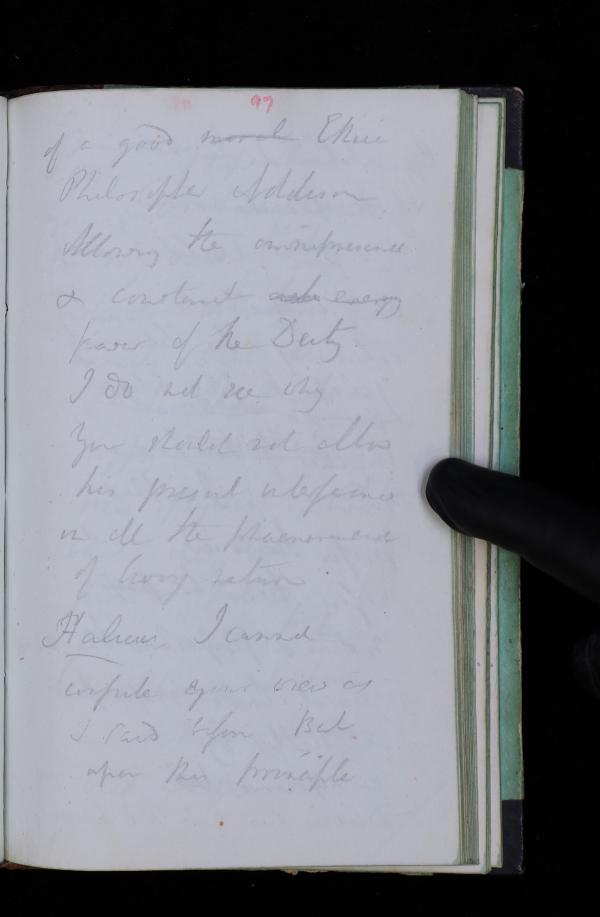 97
of a good moral Ethic
Philosopher Addison
Allowing the omnipresence
& constant energy
power of the Deity.
I do not see why
You should not allow
his present interference
in all the phaenomena
of living nature.
Halieus, I cannot
confute your views as
I said before But
upon this principle